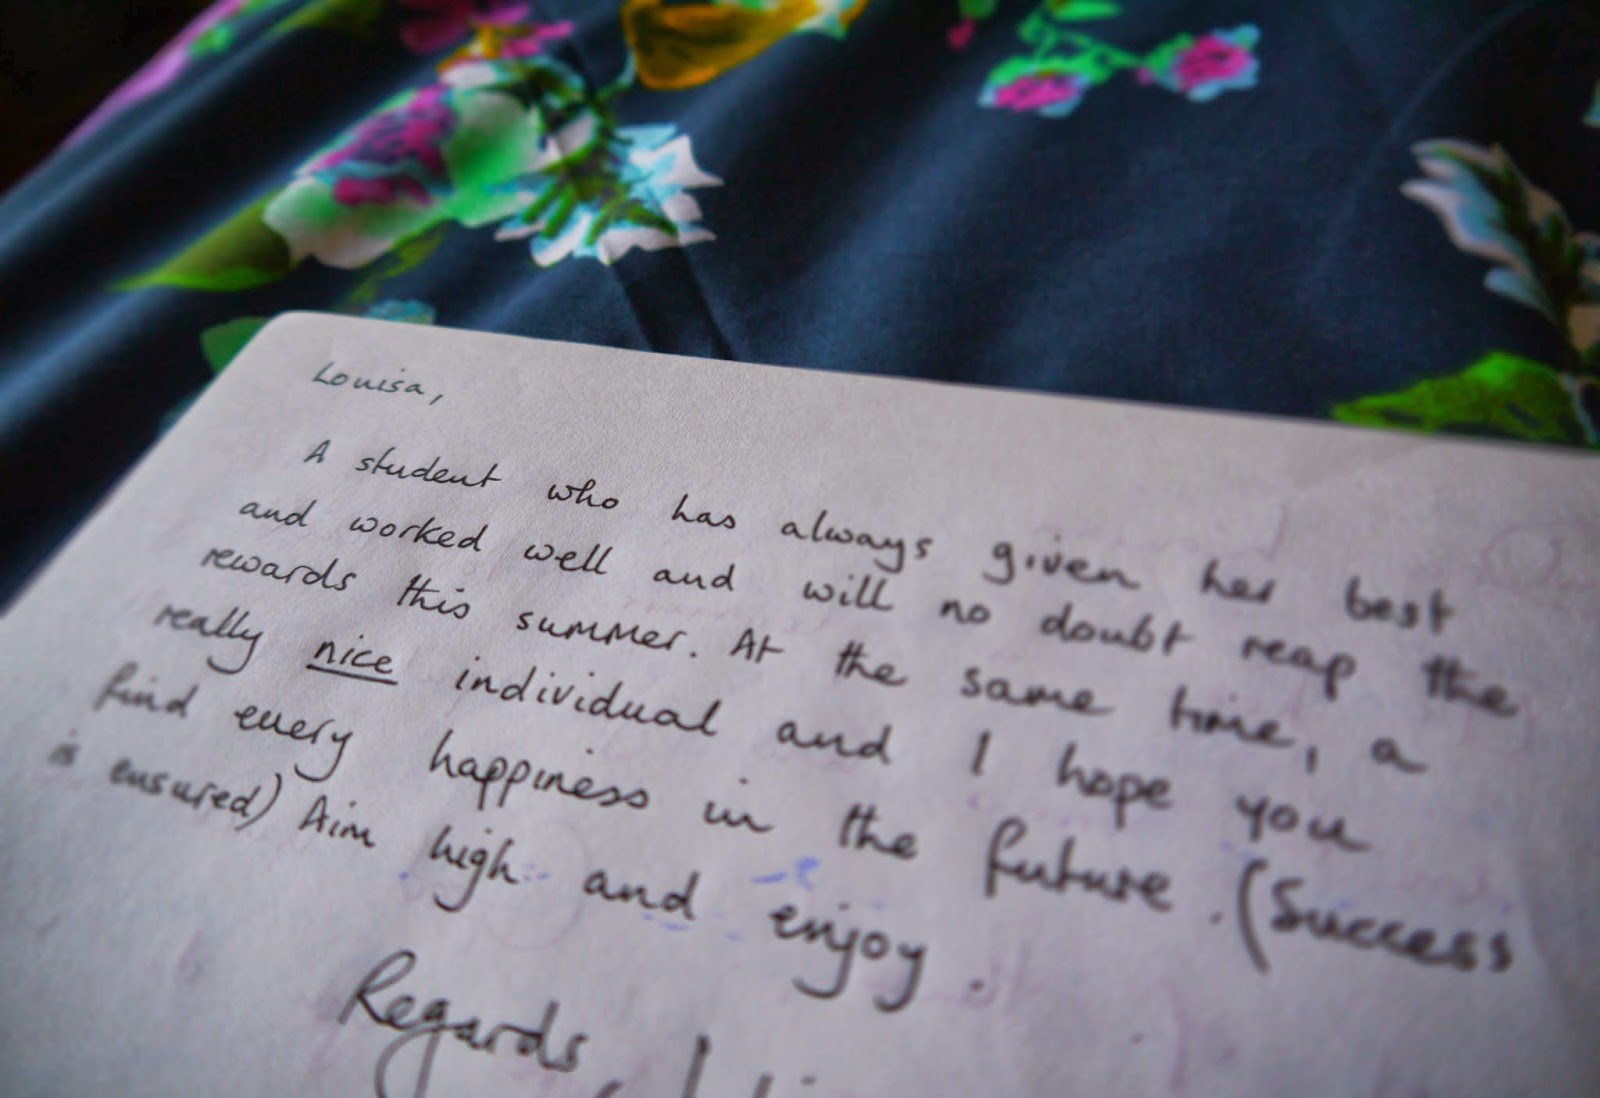 Louisa,
A student who has always given her best
and worked well and will no doubt reap the
rewards this summer. At the same time, a
really nice individual and I hope you
find every happiness in the future. (Success
is ensured) Aim high and enjoy.
Regards,